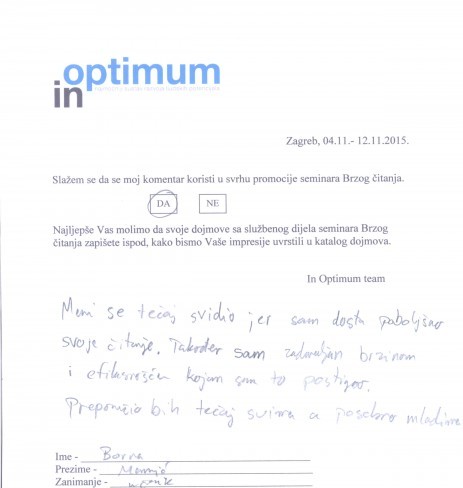 in optimum
Zagreb, 04.11.- 12.11.2015.
Slažem se da se moj komentar koristi u svrhu promocije seminara Brzog čitanja.
DA NE
Najljepše Vas molimo da svoje dojmove sa službenog dijela seminara Brzog
čitanja zapišete ispod, kako bismo Vaše impresije uvrstili u katalog dojmova.
In Optimum team
Meni se tečaj svidio jer sam dosta poboljšao
svoje čitanje. Također sam zadovoljan brzinom
i kojom sam to postigao.
Preporučio bih tečaj svima a posebno mladima
Ime - Borna
Prezime -
Zanimanje -